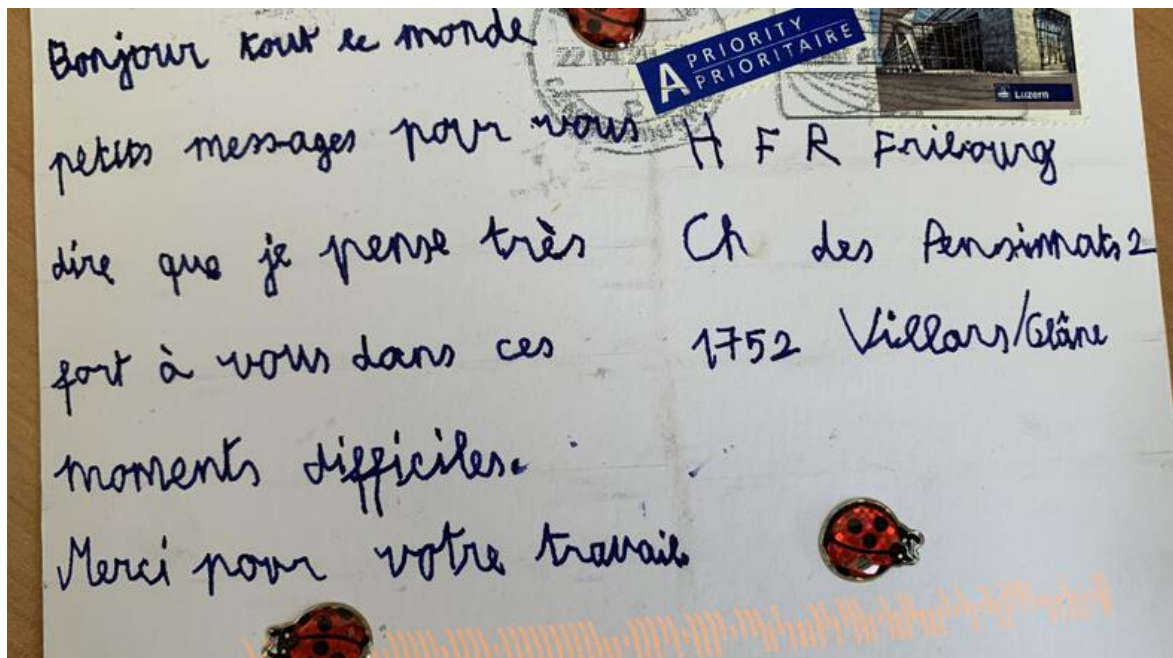 Bonjour tout le monde
petits messages pour vous
dire que je pense très
fort à vous dans ces
moments difficiles.
Merci pour votre travail
A PRIORITY
PRIORITAIRE
Luzern
H F R Fribourg
Ch des Pensionnats 2
1752 Villars/Glâne